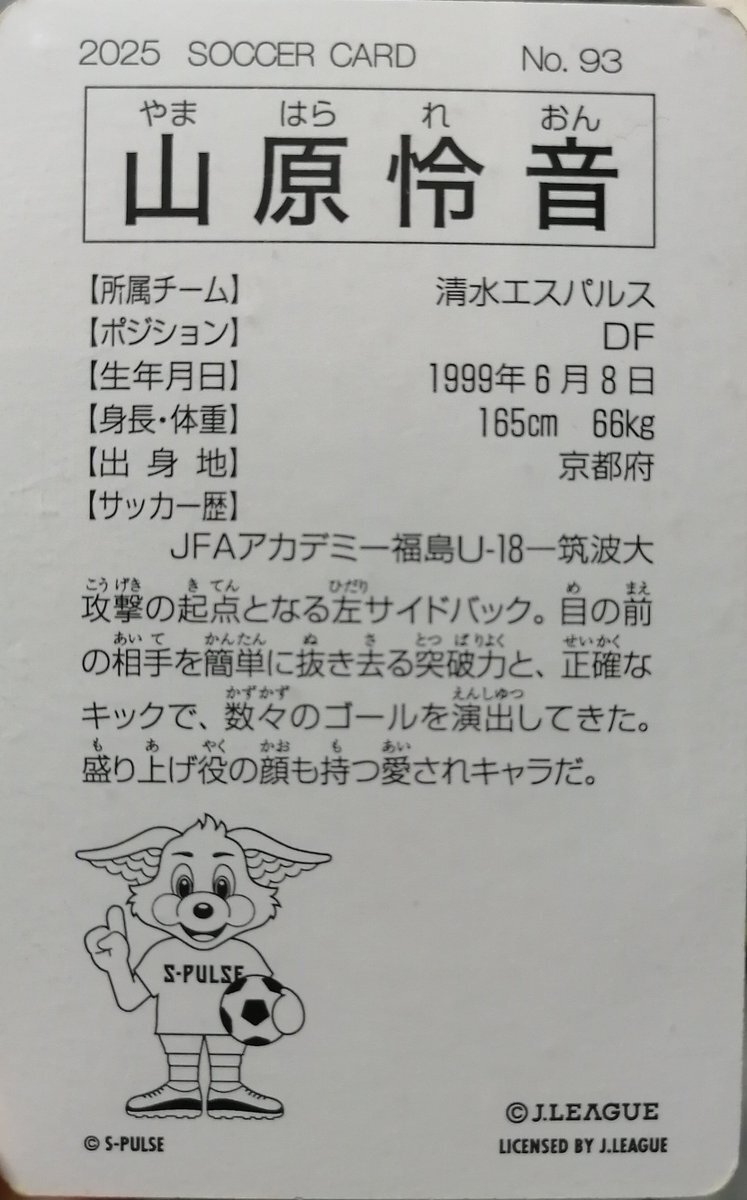 2025 SOCCER CARD No. 93
やま はら れ おん
山原怜音
【所属チーム】 清水エスパルス
【ポジション】 DF
【生年月日】 1999年6月8日
【身長・体重】 165cm 66kg
【出身地】 京都府
【サッカー歴】
JFAアカデミー福島U-18―筑波大
こうげき きてん ひだり め まえ
攻撃の起点となる左サイドバック。目の前
あいて かんたん ぬ さ とっぱりよく せいかく
の相手を簡単に抜き去る突破力と、正確な
かずかず えんしゅつ
キックで、数々のゴールを演出してきた。
も あ やく かお も あい
盛り上げ役の顔も持つ愛されキャラだ。
S-PULSE
© J.LEAGUE
© S-PULSE LICENSED BY J.LEAGUE